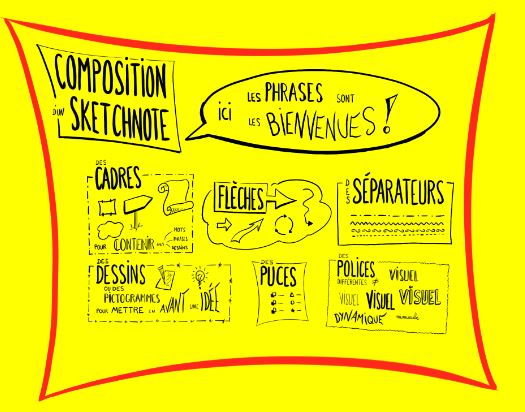 COMPOSITION
D'UN SKETCHNOTE
ici LES PHRASES SONT
LES BIENVENUES !
DES
CADRES
POUR CONTENIR DES
MOTS
PHRASES
DESSINS
FLÈCHES
DES SÉPARATEURS
DES
DESSINS
OU DES
PICTOGRAMMES
POUR METTRE EN AVANT UNE IDÉE
DES
PUCES
DES
POLICES
DIFFÉRENTES ≠ VISUEL
VISUEL VISUEL VISUEL
DYNAMIQUE